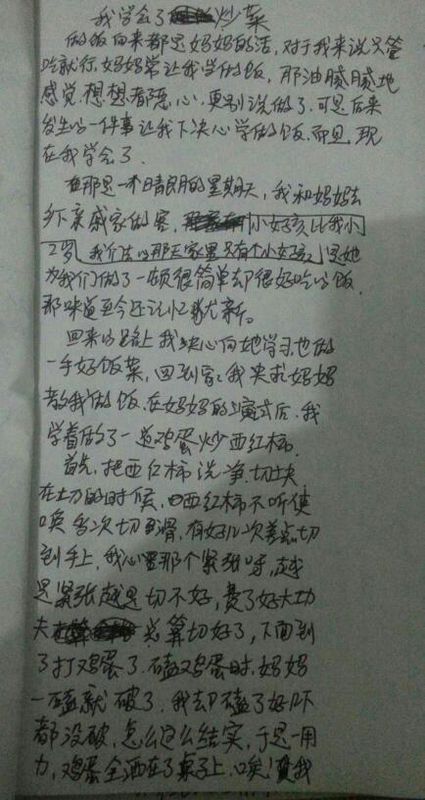 我学会了炒菜
做饭向来都是妈妈的活,对于我来说只管
吃就行,妈妈常让我学做饭,那油腻腻地
感觉,想想都恶心,更别说做了,可是后来
发生的一件事让我下决心学做饭,而且,现
在我学会了.
在那是一个晴朗的星期天,我和妈妈去
乡下亲戚家做客,小女孩比我小
2岁 我们去的那天家里只有个小女孩 是她
为我们做了一顿很简单却很好吃的饭,
那味道至今还记忆犹新。
回来的路上我决心向她学习也做
一手好饭菜,回到家,我央求妈妈
教我做饭,在妈妈的演式后,我
学着做了一道鸡蛋炒西红柿.
首先,把西红柿洗净,切块
在切的时候,西红柿不听使
唤每次切都滑,有好几次差点切
到手上,我心里那个紧张呀,越
是紧张越是切不好,费了好大功
夫总算切好了,下面到
了打鸡蛋了.磕鸡蛋时,妈妈
一磕就破了.我却磕了好几下
都没破,怎么这么结实,于是一用
力,鸡蛋全洒在了桌子上,唉!费我